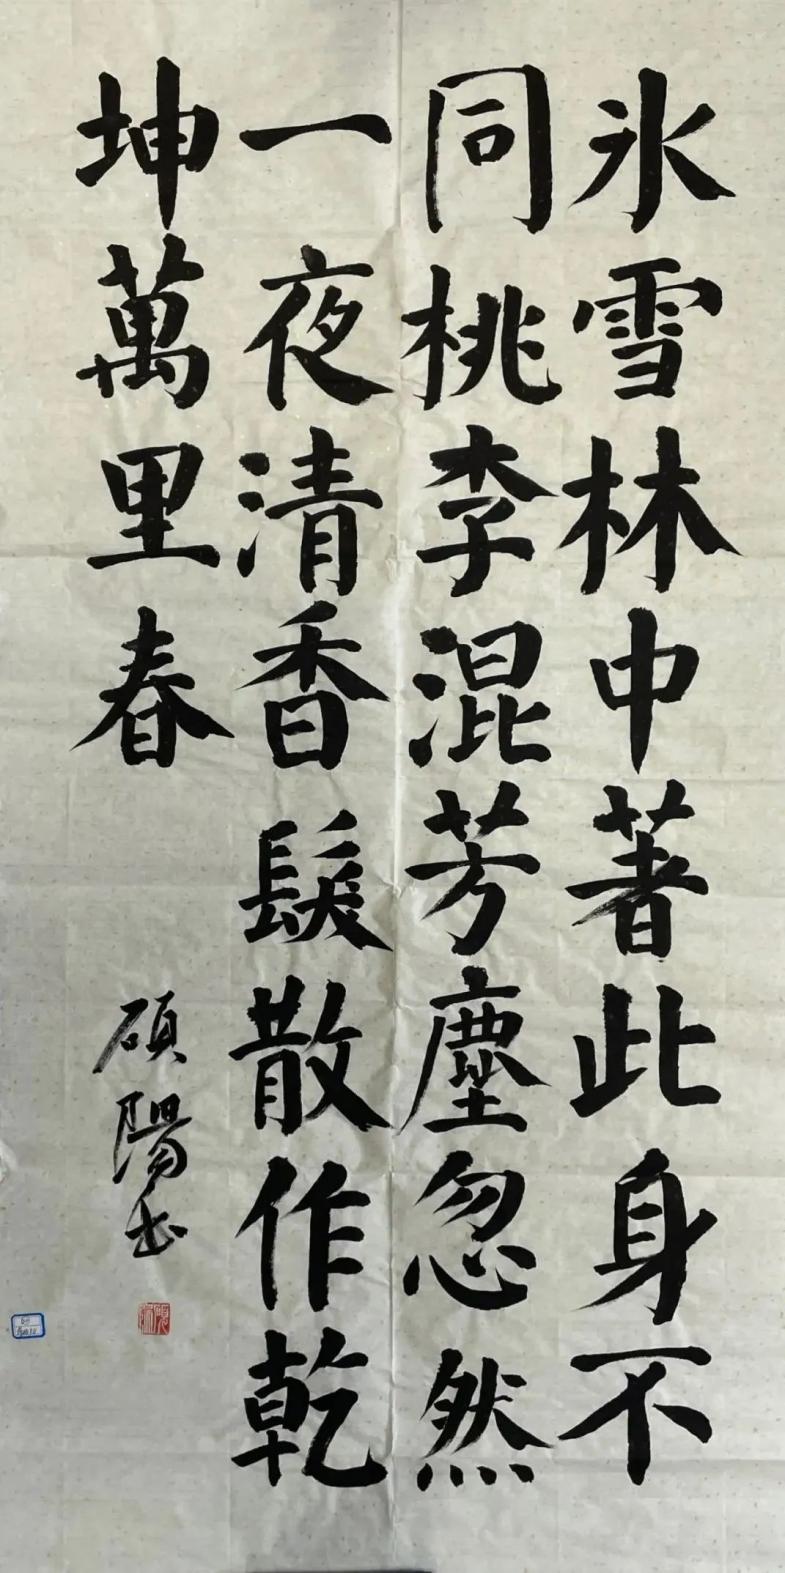 氷雪林中著此身不
同桃李混芳塵忽然
一夜清香髮散作乾
坤萬里春
碩陽书